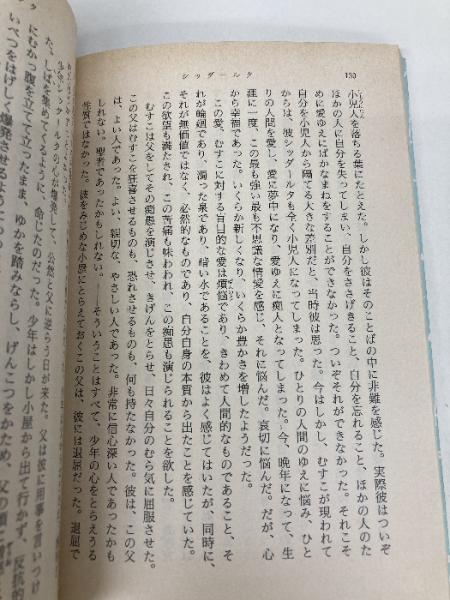 シッダールタ
130
小児人を落ちる葉にたとえた。しかし彼はそのことばの中に非難を感じた。実際彼はついぞ
ほかの人に自分を失ってしまい、自分をささげきること、自分を忘れること、ほかの人のた
めに愛ゆえにばかなまねをすることができなかった。ついぞそれができなかった。それこそ
自分を小児人から隔てる大きな差別だと、当時彼は思った。今はしかし、むすこが現われて
からは、彼シッダールタも全く小児人になってしまった。ひとりの人間のゆえに悩み、ひと
りの人間を愛し、愛に夢中になり、愛ゆえに痴人となってしまった。今、晩年になって、生
涯に一度、この最も強い最も不思議な情愛を感じ、それに悩んだ。哀切に悩んだ。だが、心
から幸福であった。いくらか新しくなり、いくらか豊かさを増したようだった。
この愛、むすこに対する盲目的な愛は煩悩であり、きわめて人間的なものであること、そ
れが輪廻であり、濁った泉であり、暗い水であることを、彼はよく感じてはいたが、同時に、
それが無価値ではなく、必然的なものであり、自分自身の本質から出たことを感じていた。
この欲望も満たされ、この苦痛も味わわれ、この痴愚も演じられることを欲した。
むすこは父をしてその痴愚を演じさせ、きげんをとらせ、日々自分のむら気に屈服させた。
この父はむすこを狂喜させるものも、恐れさせるものも、何も持たなかった。彼は、この父
は、よい人であった。よい、親切な、やさしい人であった。非常に信心深い人であったかも
しれない。聖者であったかもしれない。――そういうことはすべて、少年の心をとらえうる
性質ではなかった。彼をみじめな小屋にとらえておくこの父は、彼には退屈だった。退屈で
の心が爆発して、公然と父に逆らう日が来た。父は彼に用事を言いつけ
た。しばを集めてくるように、命じたのだった。少年はしかし小屋から出て行かず、反抗的
にむかっ腹を立てて立ったまま、ゆかを踏みならし、げんこつをかため、父の
いべつをはげしく爆発させる